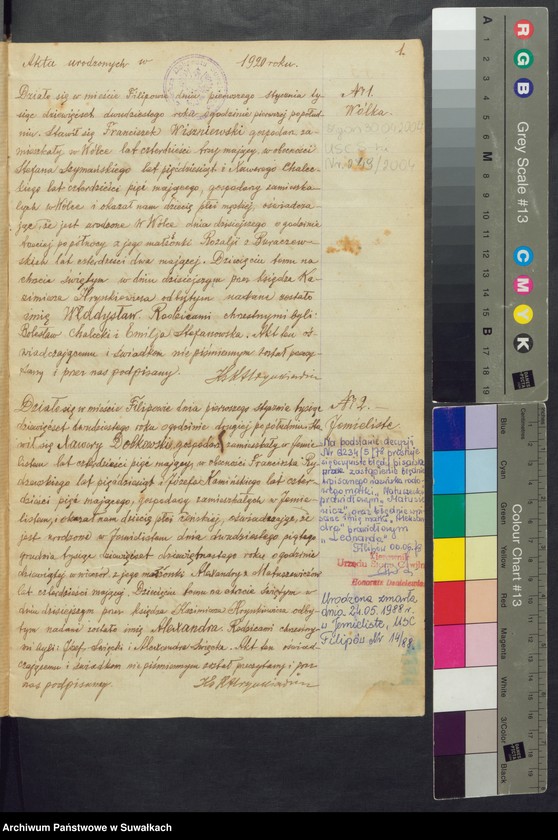 Akta urodzonych w 1920 roku.
1.
Działo się w mieście Filipowie dnia pierwszego stycznia ty-
siąc dziewięćset dwudziestego roku o godzinie pierwszej popołud-
niu. Stawił się Franciszek Wiszniewski gospodarz za-
mieszkały w Wólce lat czterdzieści trzy mający, w obecności
Stefana Szymańskiego lat pięćdziesiąt i Ksawerego Chalec-
kiego lat czterdzieści pięć mającego, gospodarzy zamieszka-
łych w Wólce i okazał nam dziecię płci męskiej, oświadcza-
jąc, że jest urodzone w Wólce dnia dzisiejszego o godzinie
trzeciej po północy z jego małżonki Rozalji z Buraczew-
skich lat czterdzieści dwa mającej. Dziecięciu temu na
chrzcie świętym w dniu dzisiejszym przez księdza Ka-
zimierza Hrynkiewicza odbytym nadane zostało
imię Władysław. Rodzicami chrzestnymi byli:
Bolesław Chalecki i Emilja Stefanowska. Akt ten oś-
wiadczającemu i świadkom niepiśmiennym został przeczy-
tany i przez nas podpisany. Ks. K. Hrynkiewicz
№ 1.
Wólka.
30.04.2004
USC
2004
Działo się w mieście Filipowie dnia pierwszego stycznia tysiąc
dziewięćset dwudziestego roku o godzinie drugiej popołudniu. Sta-
wił się Ksawery Dołkowski gospodarz zamieszkały w Jemie-
listem lat czterdzieści pięć mający, w obecności Franciszka
lat pięćdziesiąt i Józefa Kamińskiego lat czter-
dzieści pięć mającego, gospodarzy zamieszkałych w Jemie-
listem, i okazał nam dziecię płci żeńskiej, oświadczając, że
jest urodzone w Jemielistem dnia dwudziestego piątego
grudnia tysiąc dziewięćset dziewiętnastego roku o godzinie
dziewiątej wieczór z jego małżonki Alexandry z Matuszewiczów
lat czterdzieści mającej. Dziecięciu temu na chrzcie świętym w
dniu dzisiejszym przez księdza Kazimierza Hrynkiewicza odby-
tym nadane zostało imię Alexandra. Rodzicami chrzestny-
mi byli: Józef i Alexandra. Akt ten oświad-
czającemu i świadkom niepiśmiennym został przeczytany i przez
nas podpisany. Ks. K. Hrynkiewicz
№ 2.
Jemieliste
Na podstawie decyzji
Nr 8234/5/78 prostuje
się oczywisty błąd pisarski
przez zastąpienie błędnie
wpisanego nazwiska rodo-
wego matki
prawidłowym
oraz błędnie wpi-
sane imię matki
prawidłowym
"Leonarda"
Filipów
Kierownik
Urzędu Stanu Cywilnego
Urodzona zmarła
dnia 24.05.1988 r.
w Jemieliste, USC
Filipów Nr 14/88.
A
1
2
3
4
5
6
M
8
9
10
11
12
13
14
15
B
17
18
19
R
G
B
Grey Scale #13
C
M
Y
K
Colour Chart #13
Blue
Cyan
Green
Yellow
Red
Magenta
White
3/Color
Black
Centimetres
Inches
Archiwum Państwowe w Suwałkach